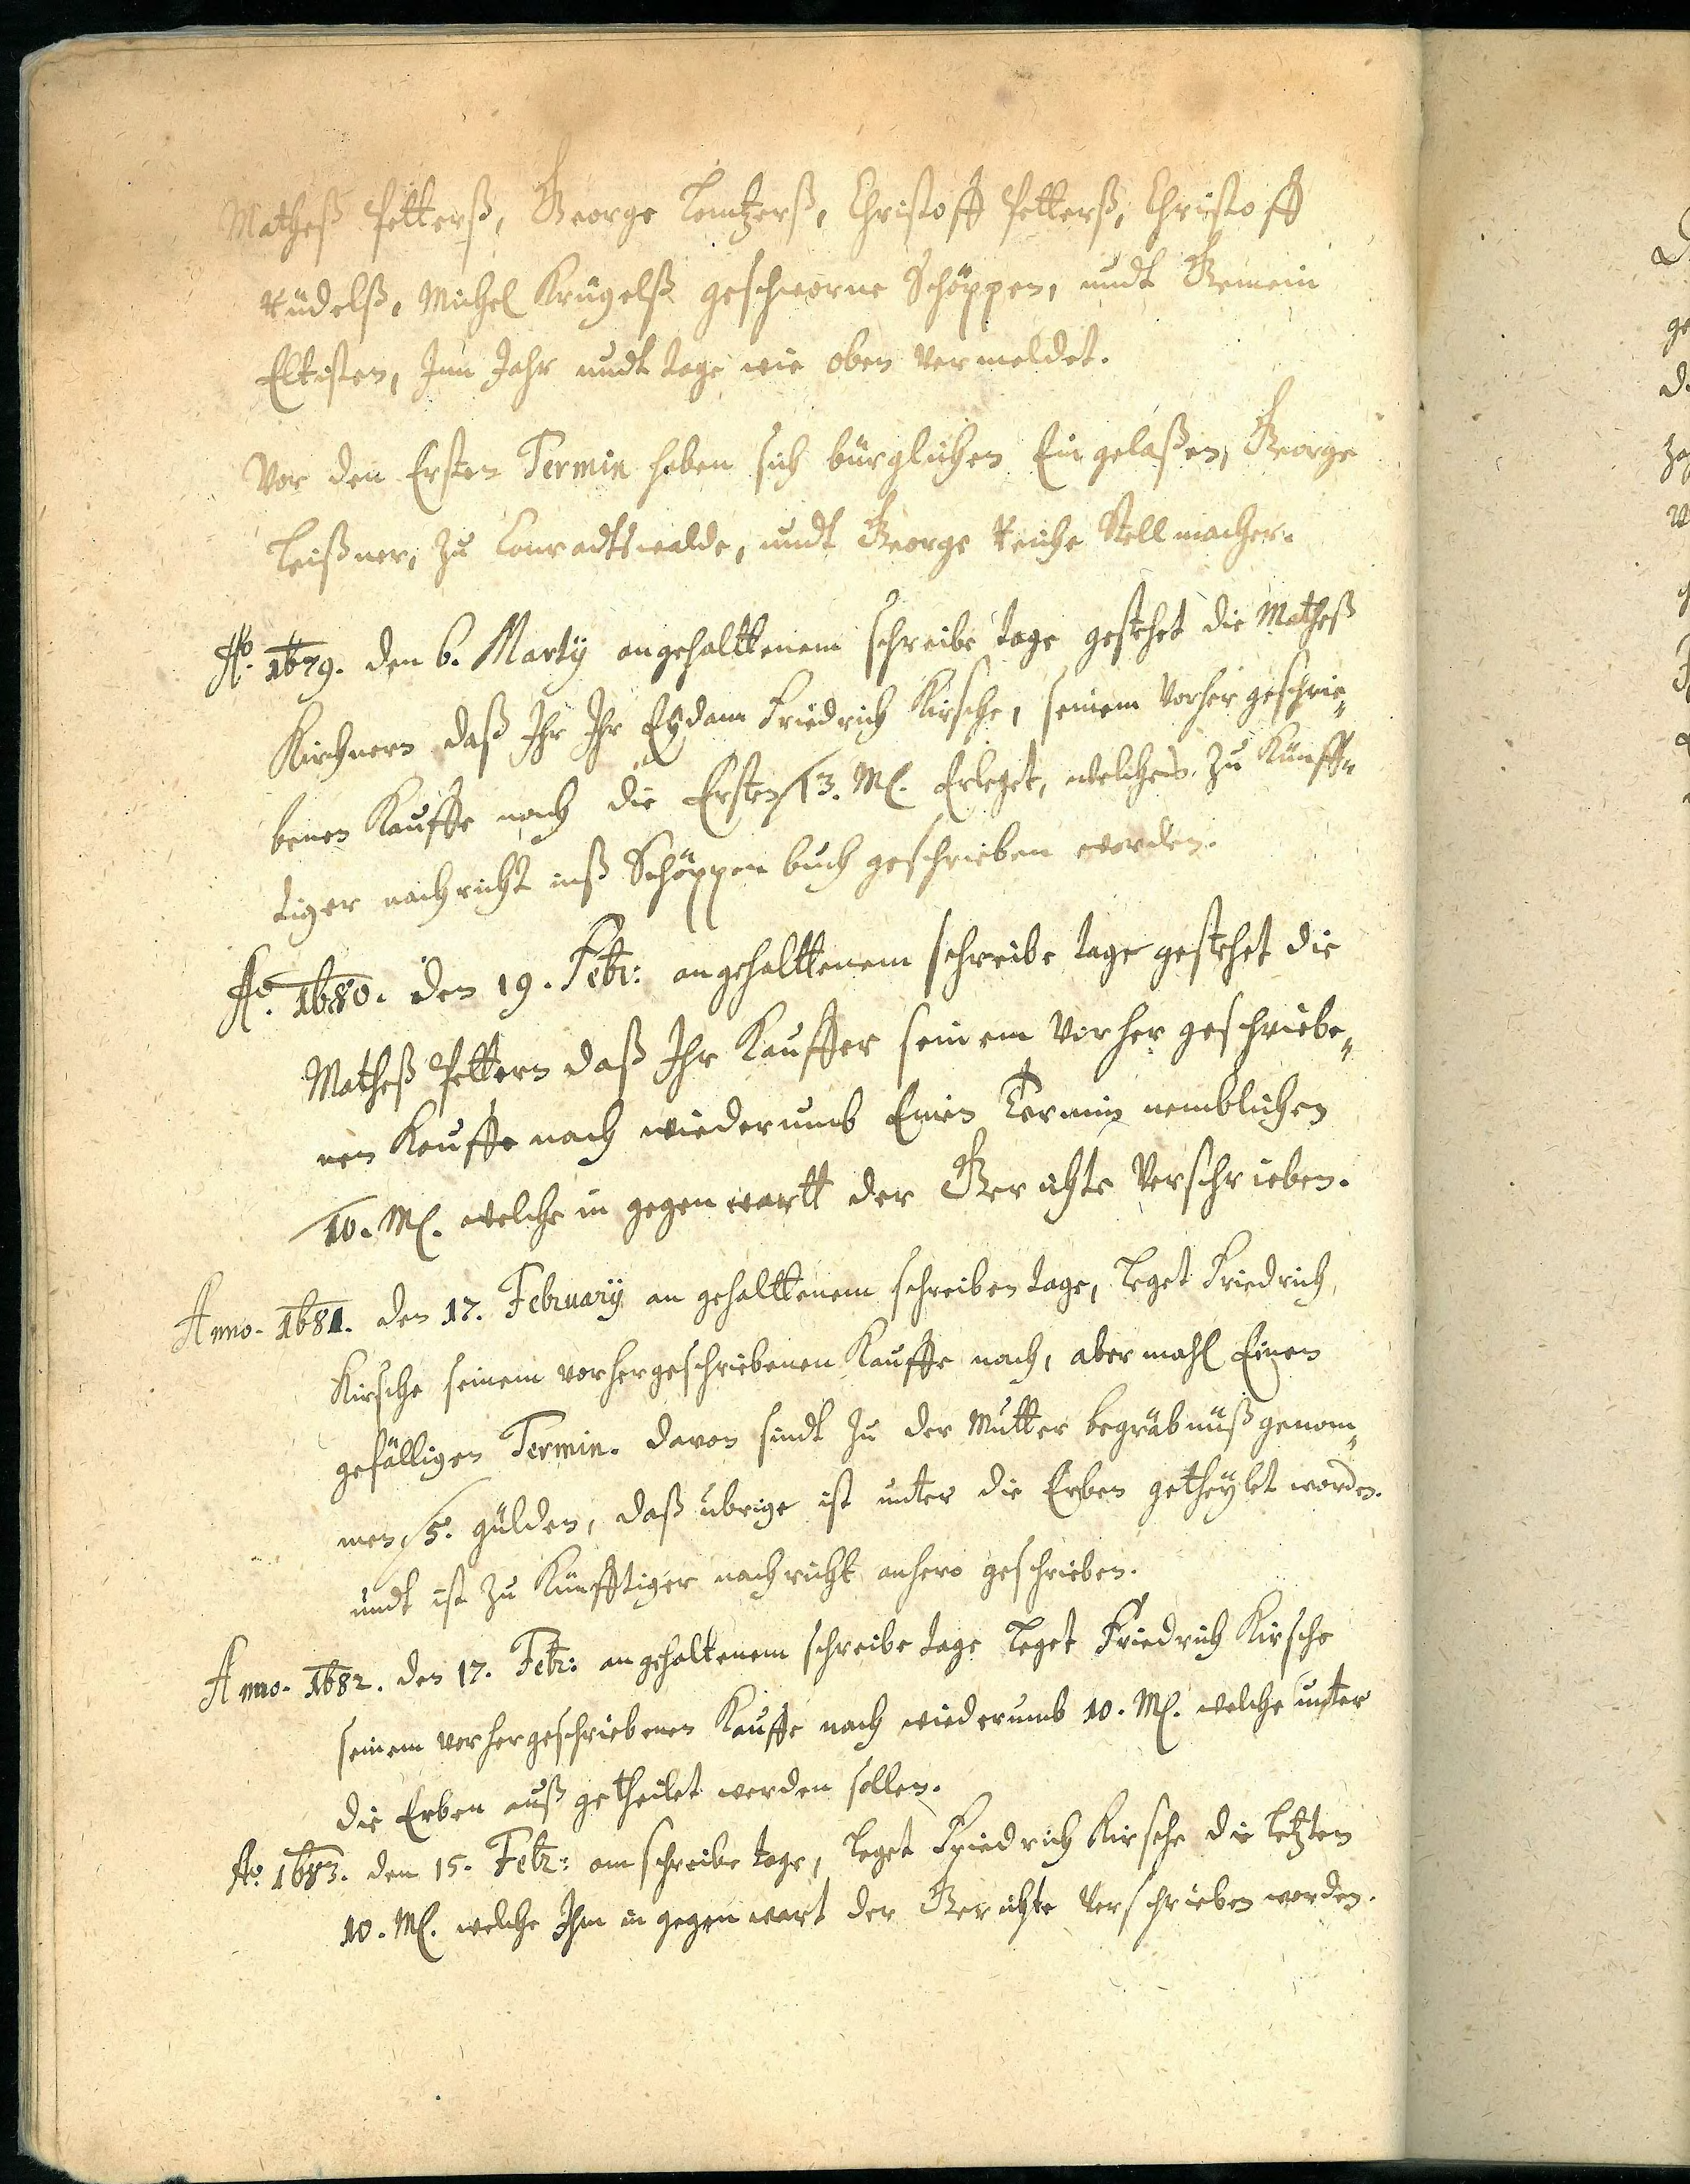 Matheß Petterß, George Lentzerß, Christoff Petterß, Christoff
Rüdelß, Michel Krügelß geschworne Schöppen, undt Gemein
Eltisten, Inn Jahr undt tage wie oben vermeldet.
Vor den Ersten Termin haben sich bürglichen Ein gelaßen, George
Leißner, zu Conradtswalde, undt George Reiche Stellmacher.
Ao. 1679. den 6. Martÿ angehalttenem schreibe tage gestehet die Matheß
Kirchnern daß Ihr Ihr Eydam Friedrich Kirsche, seinem vorher geschrie„
benen Kauffe nach die Ersten 13. M. Erleget, welches zu Künff„
tiger nachricht inß Schöppen buch geschrieben worden.
Ao. 1680. den 19. Febr: angehalttenem schreibe tage gestehet die
Matheß Pettern daß Ihr Kauffer seinem vorher geschriebe„
nen Kauffe nach wiederumb Einen Termin nemblichen
10. M. welche in gegenwartt der Gerichte verschrieben.
Anno. 1681. den 17. Februarÿ an gehalttenem schreiben tage, Leget Friedrich
Kirsche seinem vorhergeschriebenen Kauffe nach, abermahl Einen
gefälligen Termin. davon sindt zu der Mutter begräbnüß genom„
men 5. gülden, daß übrige ist unter die Erben getheÿlet worden.
undt ist zu Künfftiger nachricht anhero geschrieben.
Anno. 1682. den 17. Febr: angehaltenem schreibe tage Leget Friedrich Kirsche
seinem vorhergeschriebenen Kauffe nach wiederumb 10. M. welche unter
die Erben auß getheilet werden sollen.
Ao. 1683. den 15. Febr: am schreibe tage, Leget Friedrich Kirsche die letzten
10. M. welche Ihm in gegenwart der Gerichte verschrieben worden.